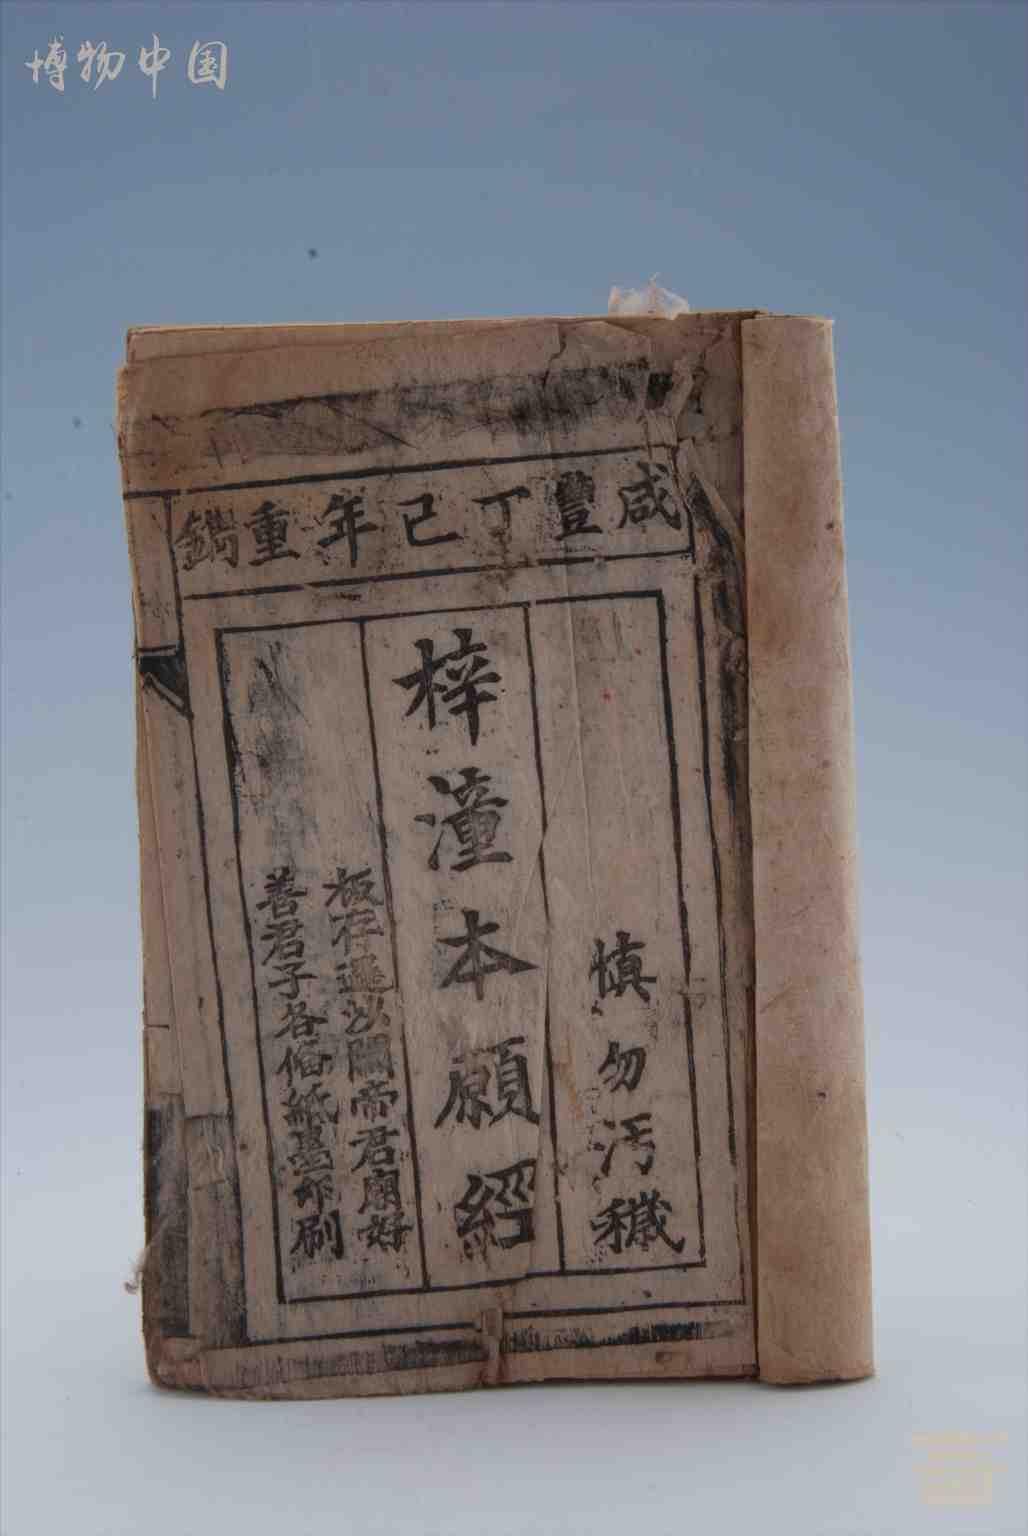 博物中国
咸豐丁己年重鐫
慎勿汚穢
梓潼本願經
板存遥以關帝君廟好
善君子各俻紙墨印刷